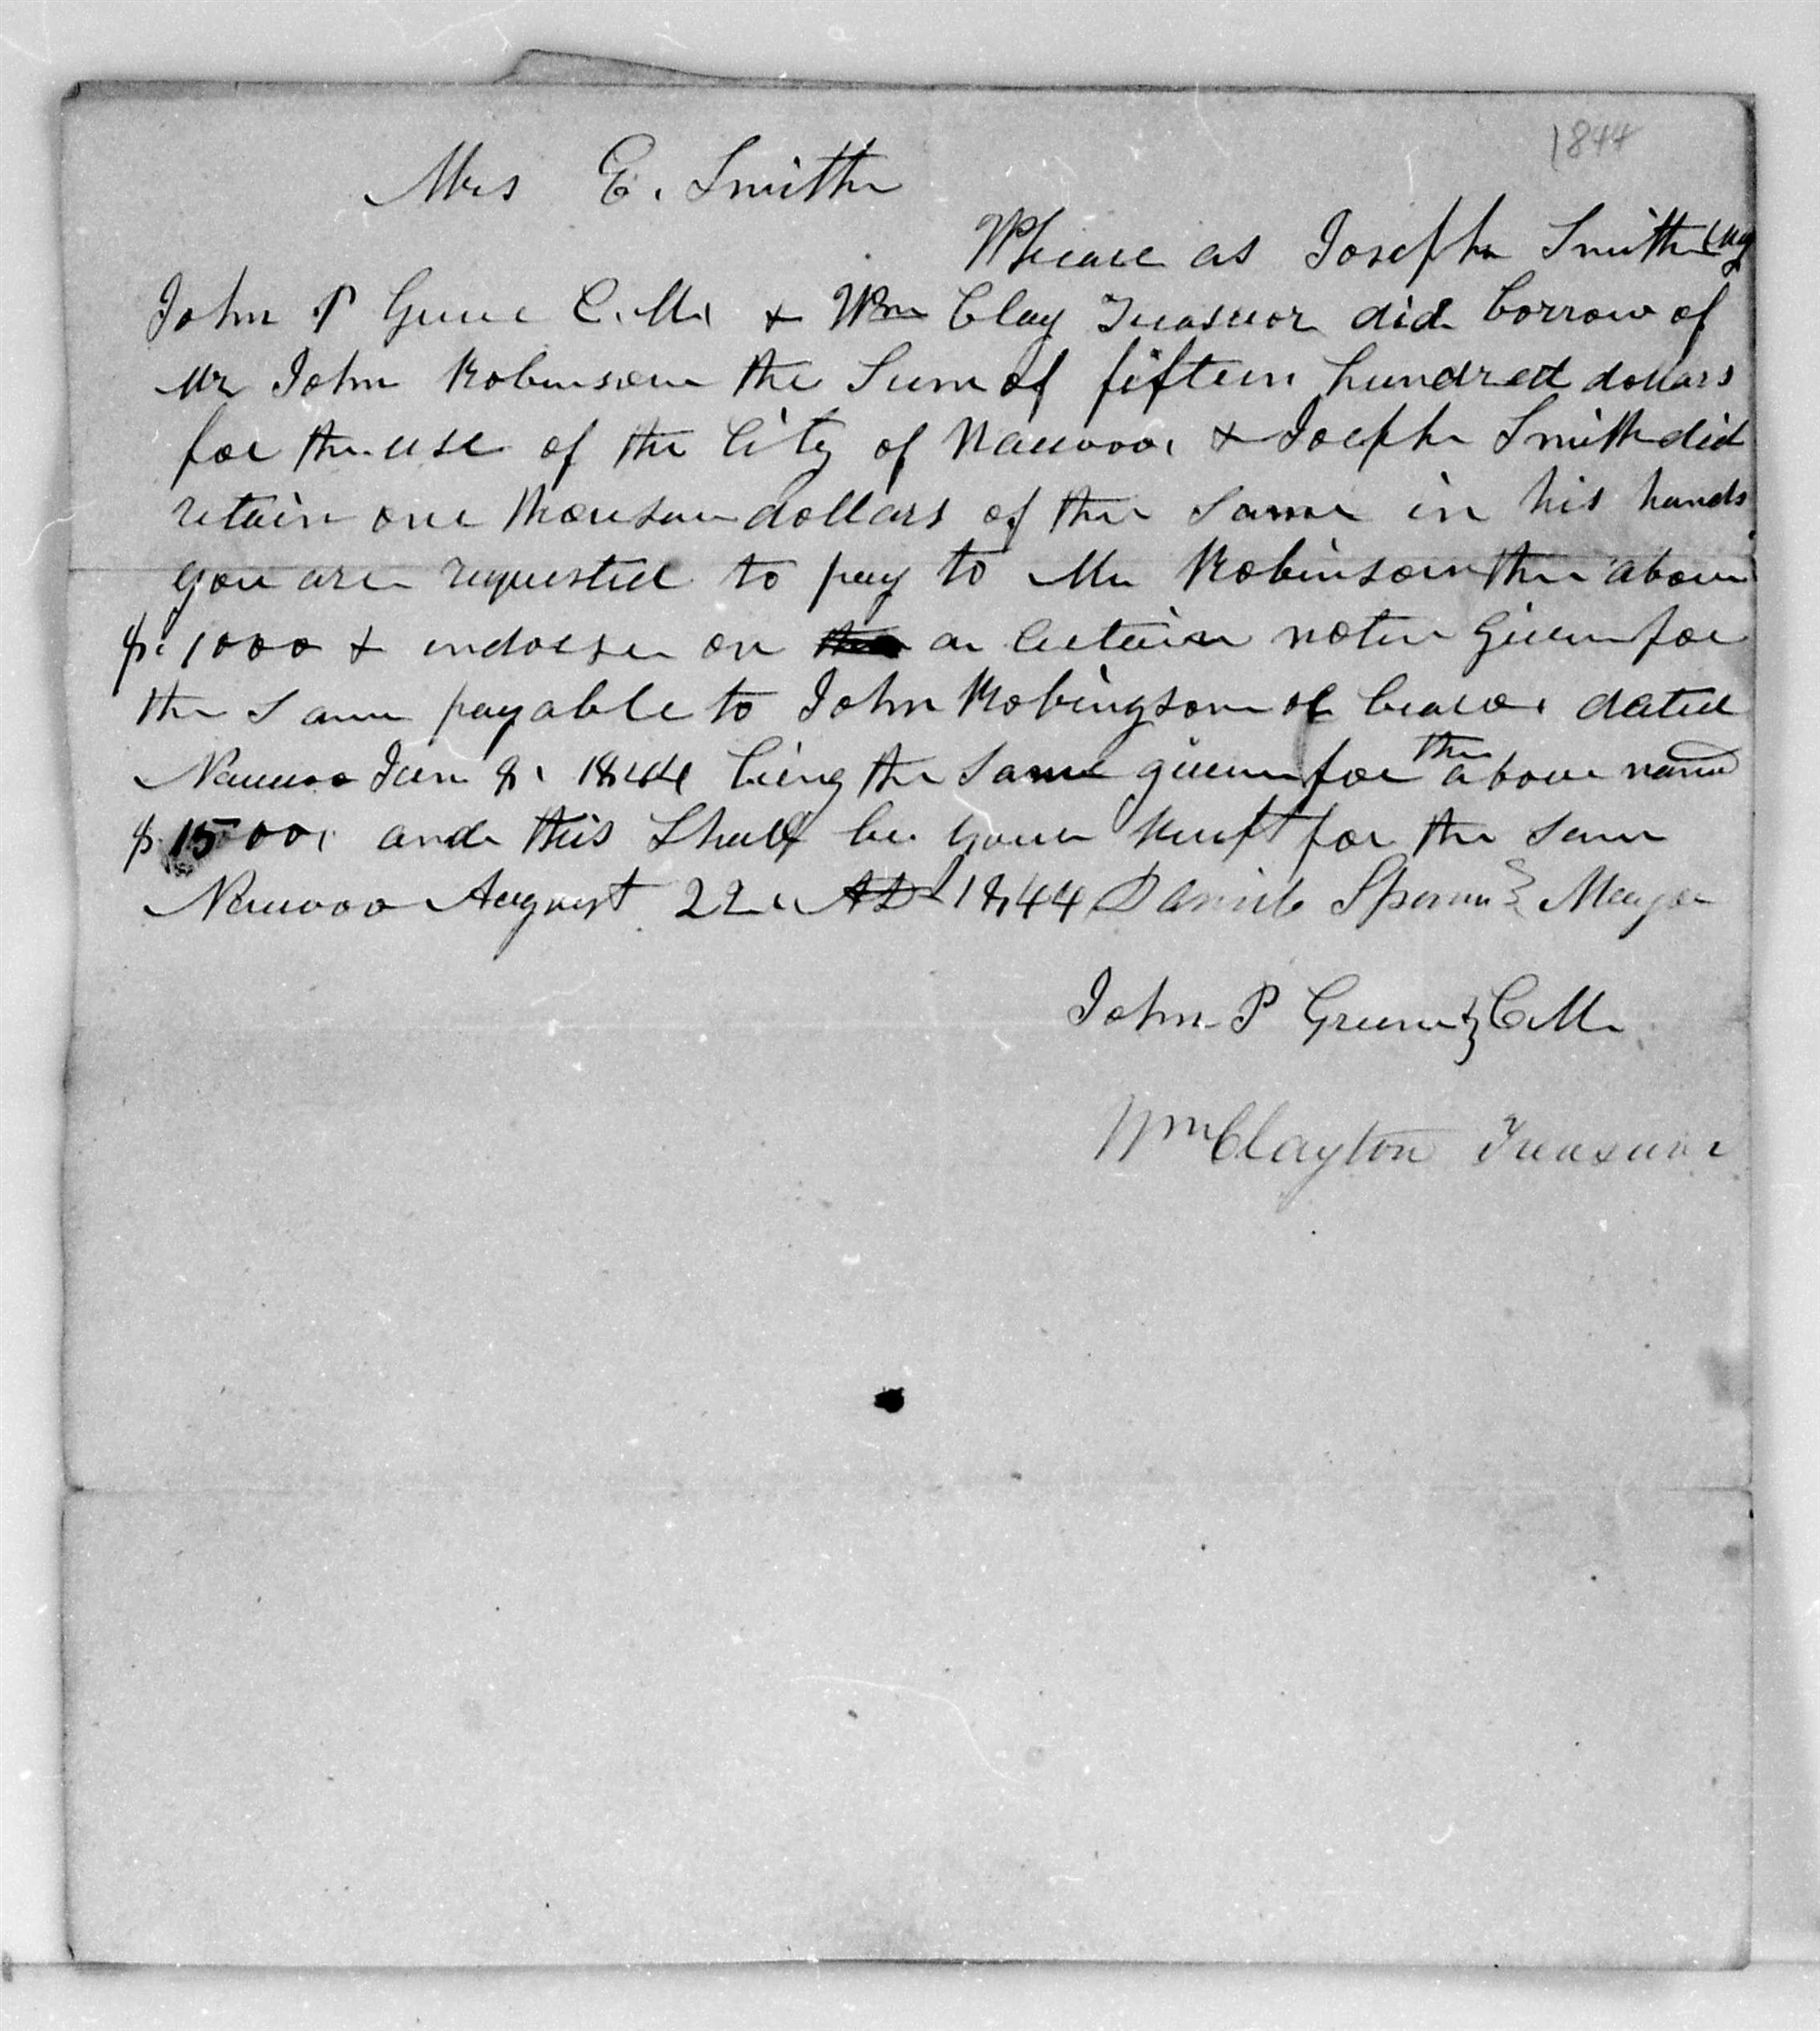 1844
Mrs E. Smith
Wheare as Joseph Smith
John P Grene C. M. & Wm Clay Treasuor did borrow of
Mr John Robinson the Sum of fifteen hundred dollars
for the use of the City of Nauvoo, & Joseph Smith did
retain one thousan dollars of the same in his hands
you are requested to pay to Mr Robinson the above
$.1000 & indorse on a certain note given for
the same payable to John Robingson or bearer dated
Nauvoo Jun 8. 1844 being the same given for the above name
$ 1500, and this Shall be your for the same
Nauvoo August 22. AD 1844 Daniel Spencer Mayor
John P Greene C M.
Wm Clayton Treasurer